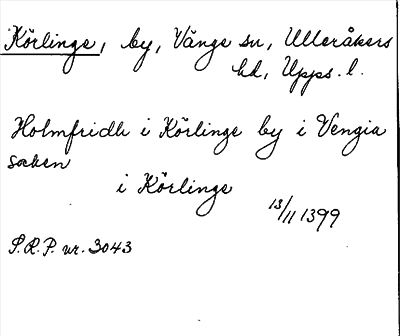 Körlinge, by, Vänge sn, Ulleråkers
hd, Upps. l.
Holmfridh i Körlinge by i Vengia
soken
i Körlinge
13/11 1399
S.R.P. nr. 3043